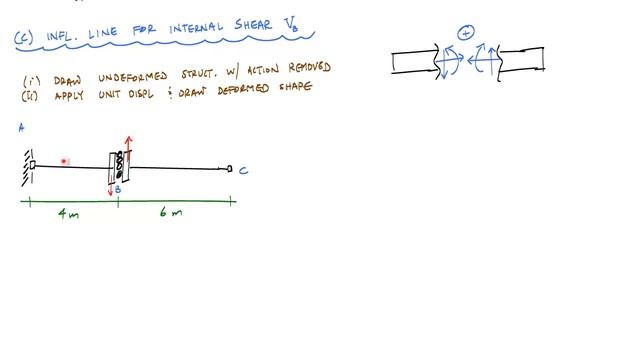 (C) INFL. LINE FOR INTERNAL SHEAR V_B
(i) DRAW UNDEFORMED STRUCT. W/ ACTION REMOVED
(ii) APPLY UNIT DISPL & DRAW DEFORMED SHAPE
+
A
B
C
4 m
6 m